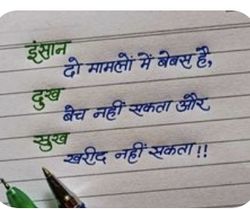 इंसान
दो मामलों में बेबस है,
दुख
बेच नहीं सकता और
सुख
खरीद नहीं सकता!!